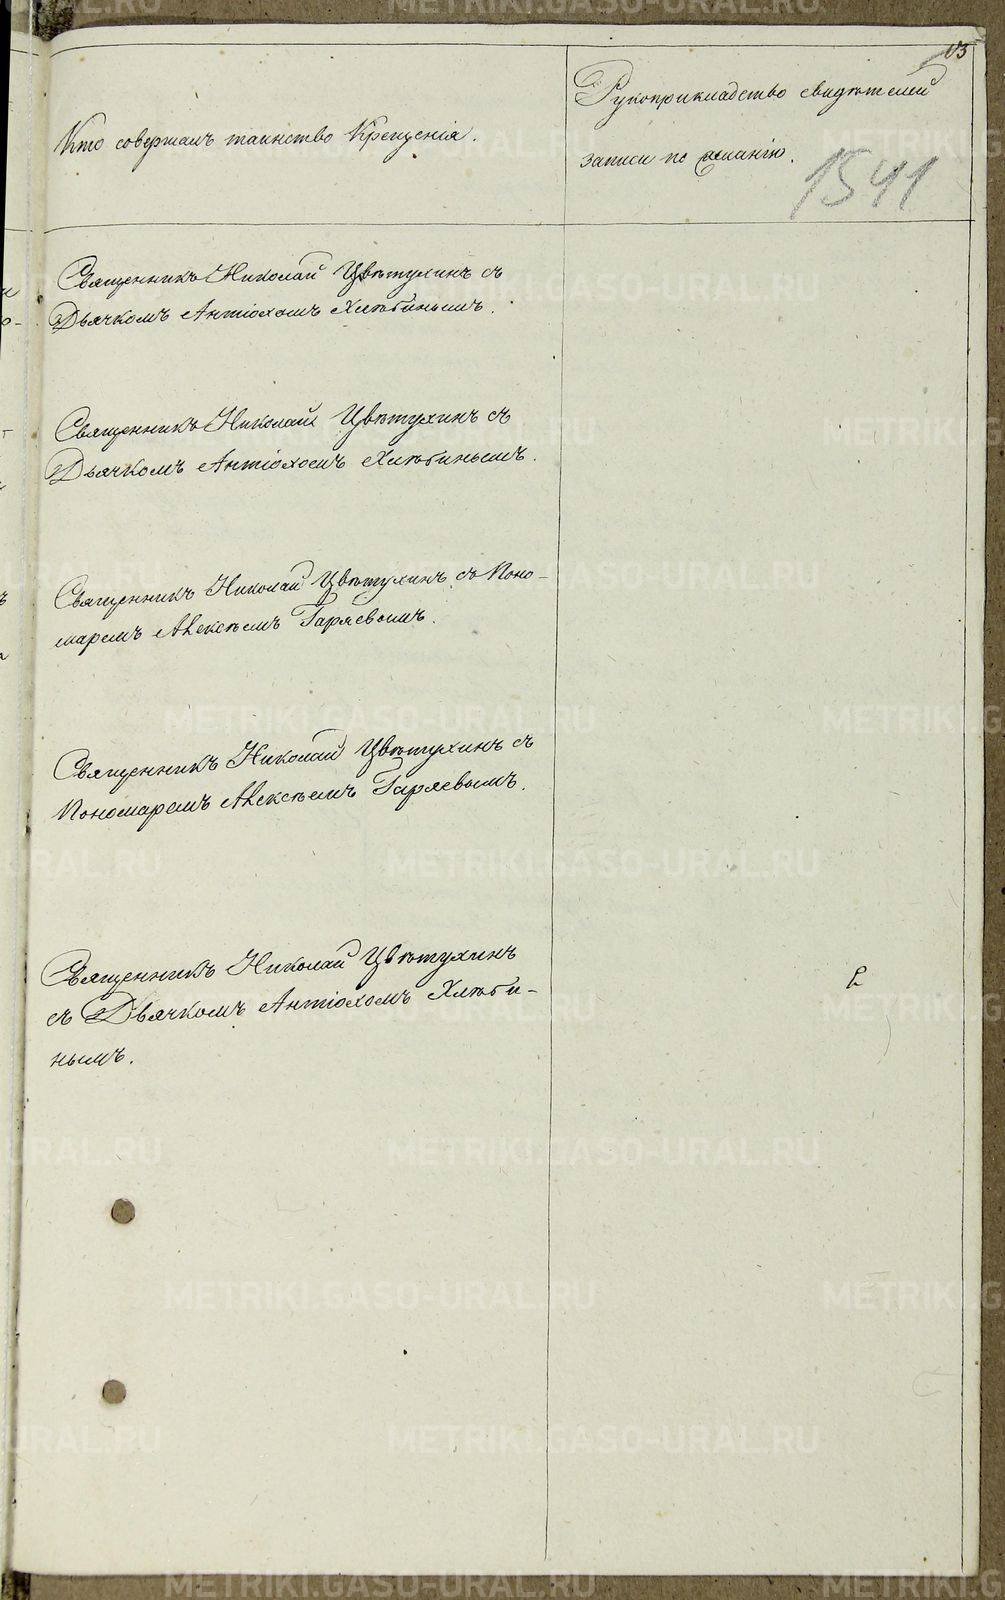 103
Кто совершалъ таинство Крещенія.
Рукоприкладство свидѣтелей
записи по желанію.
1541
Священникъ Николай Цвѣтухинъ съ
Дьячкомъ Антіохомъ Хлѣбинымъ.
Священникъ Николай Цвѣтухинъ съ
Дьячкомъ Антіохомъ Хлѣбинымъ.
Священникъ Николай Цвѣтухинъ съ Поно-
маремъ Алексѣемъ Гаряевымъ.
Священникъ Николай Цвѣтухинъ съ
Пономаремъ Алексѣемъ Гаряевымъ.
Священникъ Николай Цвѣтухинъ
съ Дьячкомъ Антіохомъ Хлѣби-
нымъ.
METRIKI.GASO-URAL.RU